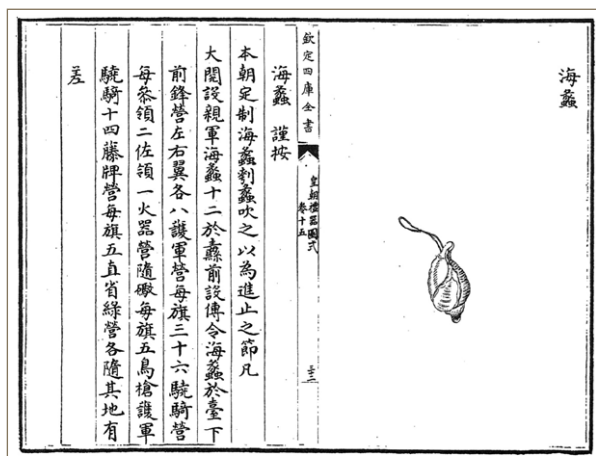 海蠡
欽定四庫全書
皇朝禮器圖式
卷十五
海蠡 謹按
本朝定制海蠡刳蠡吹之以為進止之節凡
大閱設親軍海蠡十二於纛前設傳令海蠡於臺下
前鋒營左右翼各八護軍營每旗三十六驍騎營
每叅領二佐領一火器營隨礟每旗五鳥槍護軍
驍騎十四藤牌營每旗五直省綠營各隨其地有
差